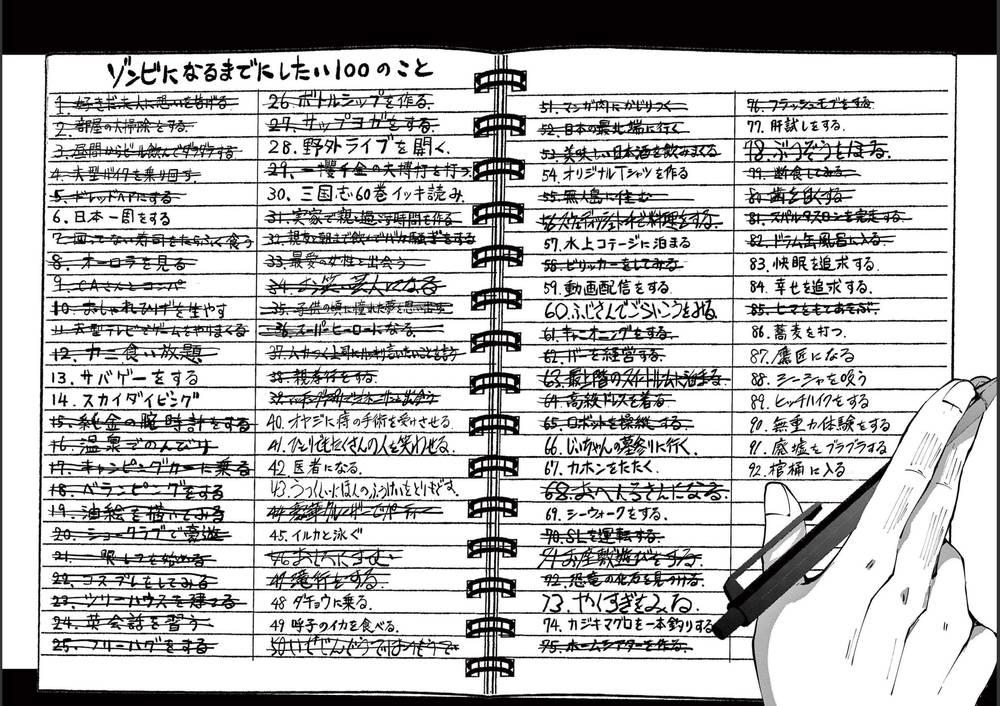 ゾンビになるまでにしたい100のこと
1. 好きだった人に思いを告げる
2. 部屋の大掃除をする。
3. 昼間からビール飲んでダラダラする
4. 大型バイクを乗り回す
5. ドレッドヘアにする
6. 日本一周をする
7. 回ってない寿司をたらふく食う
8. オーロラを見る
9. CAさんとコンパ
10. おしゃれひげを生やす
11. 大型テレビでゲームをやりまくる
12. カニ食い放題
13. サバゲーをする
14. スカイダイビング
15. 純金の腕時計をする
16. 温泉でのんびり
17. キャンピングカーに乗る
18. ベランピングをする
19. 油絵を描いてみる
20. ショークラブで豪遊
21. 眠レコを始める
22. コスプレをしてみる
23. ツリーハウスを建てる
24. 英会話を習う
25. フリーハグをする
26. ボトルシップを作る。
27. サップヨガをする
28. 野外ライブを開く。
29. 一攫千金の大博打を打つ
30. 三国志60巻イッキ読み
31. 実家で親と過ごす時間を作る
32. 親友と朝まで飲んでバカ騒ぎをする
33. 最愛の女性と出会う
34. お笑い芸人になる
35. 子供の頃に憧れた夢を思い出す
36. スーパーヒーローになる。
37. ムカつく上司に
38. 親孝行をする。
39.
40. オヤジに痔の手術を受けさせる。
41. ひとりでもたくさんの人を笑わせる。
42. 医者になる。
43. うつくしいにほんのふうけいをとりもどす。
44. 豪華クルーザーでパーティー
45. イルカと泳ぐ
46. おしろにすむ
47. 滝行をする。
48. ダチョウに乗る。
49. 呼子のイカを食べる。
50.
51. マンガ肉にかじりつく
52. 日本の最北端に行く
53. 美味しい日本酒を飲みまくる
54. オリジナルTシャツを作る
55. 無人島に住む
56. 料理をする。
57. 水上コテージに泊まる
58. ビリッカーをしてみる
59. 動画配信をする
60. ふじさんでごらいこうをみる
61. キャニオニングをする。
62. バーを経営する。
63. 最上階のスイートルームに泊まる
64. 高級ドレスを着る
65. ロボットを操縦する。
66. じいちゃんの墓参りに行く。
67. カホンをたたく。
68. おへんろさんになる
69. シーウォークをする。
70. SLを運転する。
71. お座敷遊びをする
72. 恐竜の化石を見つける。
73. やくすぎをみる
74. カジキマグロを一本釣りする
75. ホームシアターを作る。
76. フラッシュモブをする
77. 肝試しをする。
78. ぶつぞうをほる。
79. 断食してみる。
80. 歯を白くする
81. スパルタスロンを完走する
82. ドラム缶風呂に入る。
83. 快眠を追求する。
84. 幸せを追求する。
85. ヒマをもてあそぶ。
86. 蕎麦を打つ。
87. 鷹匠になる
88. シーシャを吸う
89. ヒッチハイクをする
90. 無重力体験をする
91. 廃墟をブラブラする
92. 棺桶に入る